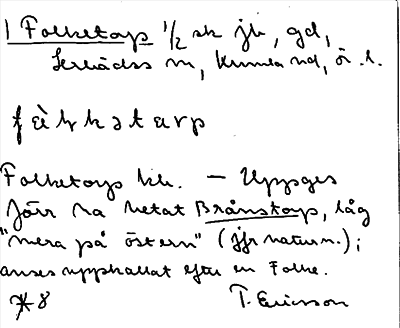 1 Folketorp 1/2 sk jb, gd,
Lerbäcks sn, Kumla hd, Ör. l.
fàlkətårp
Folketorp kb. – Uppges
förr ha hetat Brånstorp, låg
"mera på östern" (jfr naturn.);
anses upphallat efter en Folke.
T. Ericsson